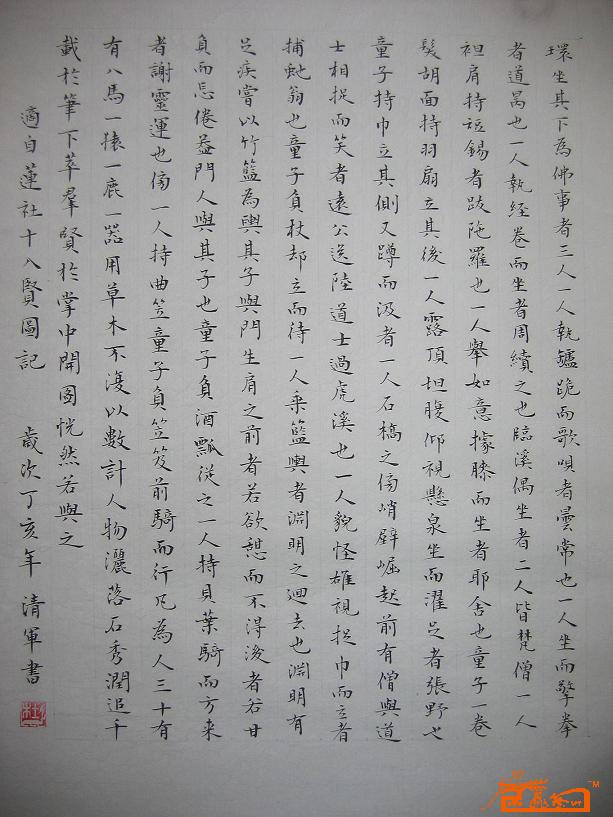 環坐其下為佛事者三人一人執鑪跪而歌唄者曇常也一人坐而擎拳
者道昺也一人執經卷而坐者周續之也臨溪偶坐者二人皆梵僧一人
袒肩持短錫者跋陁羅也一人舉如意據膝而坐者耶舍也童子一卷
髮胡面持羽扇立其後一人露頂坦腹仰視懸泉坐而濯足者張野也
童子持巾立其側又蹲而汲者一人石橋之傍峭壁崛起前有僧與道
士相捉而笑者遠公送陸道士過虎溪也一人貌怪雄視捉巾而立者
捕虵翁也童子負杖却立而待一人乘籃輿者淵明之迴去也淵明有
足疾嘗以竹籃為輿其子與門生肩之前者若欲憩而不得後者若甘
負而忘倦蓋門人與其子也童子負酒瓢從之一人持貝葉騎而方来
者謝靈運也傍一人持曲笠童子負笠笈前騎而行凡為人三十有
有八馬一猿一鹿一器用草木不復以數計人物灑落石秀潤追千
載於筆下萃羣賢於掌中開圖恍然若與之
適自蓮社十八賢圖記 歲次丁亥年 清軍書